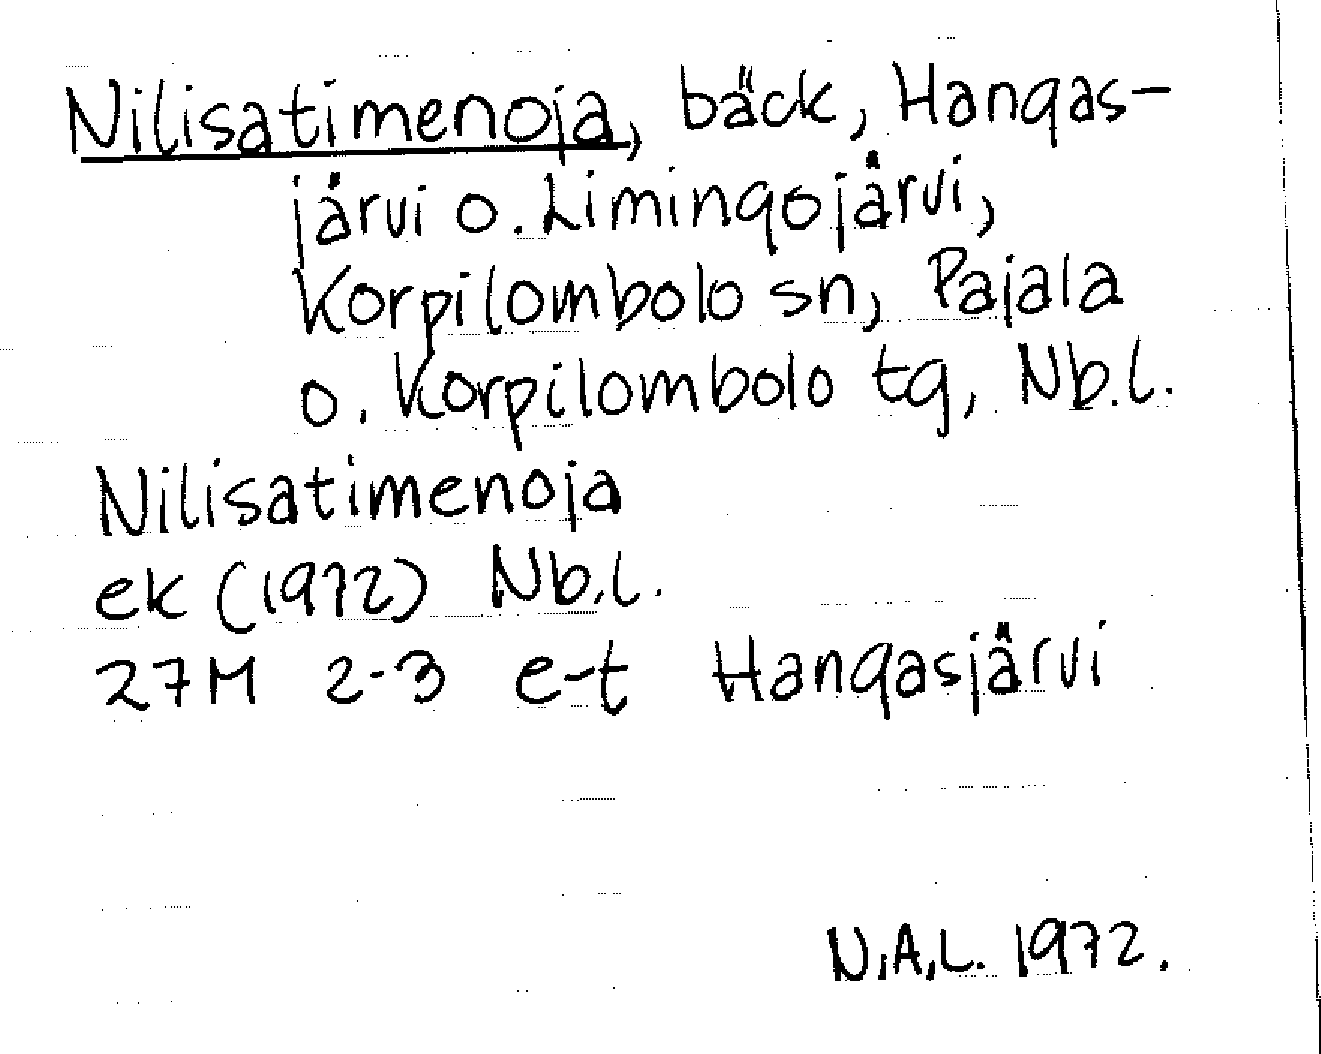 Nilisatimenoja, bäck, Hangas-
järvi o. Limingojärvi,
Korpilombolo sn, Pajala
o. Korpilombolo tg, Nb.l.
Nilisatimenoja
ek (1972) Nb.l.
27M 2-3 e-t Hangasjärvi
N.A.L. 1972.